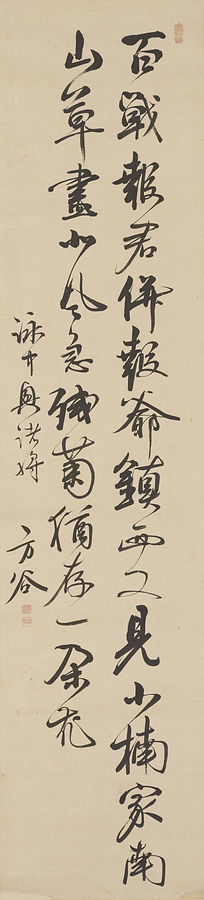 百戰報君併報爺鎮西又見小楠家南
山草盡北風急殘菊猶存一朶花
詠中興諸将
方谷